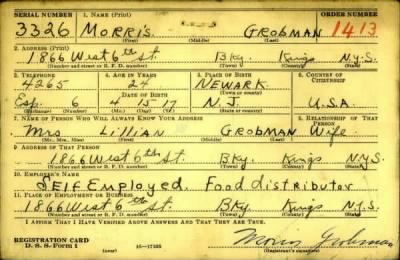 SERIAL NUMBER 1. NAME (Print) ORDER NUMBER
3326 MORRIS GROBMAN 1413
(First) (Middle) (Last)
2. ADDRESS (Print)
1866 West 6th St. Bky. Kings N.Y.S.
(Number and street or R. F. D. number) (Town) (County) (State)
3. TELEPHONE 4. AGE IN YEARS 5. PLACE OF BIRTH 6. COUNTRY OF CITIZENSHIP
4265 24 NEWARK
DATE OF BIRTH (Town or county)
Esp. 6 4 15 17 N.J. U.S.A
7. NAME OF PERSON WHO WILL ALWAYS KNOW YOUR ADDRESS 8. RELATIONSHIP OF THAT PERSON
Mrs Lillian GROBMAN Wife
(Mr., Mrs., Miss) (First) (Middle) (Last)
9. ADDRESS OF THAT PERSON
1866 West 6th St. Bky. Kings N.Y.S.
(Number and street or R. F. D. number) (Town) (County) (State)
10. EMPLOYER'S NAME
SElf Employed. Food distributor
11. PLACE OF EMPLOYMENT OR BUSINESS
1866 West 6th St. Bky. Kings N.Y.S.
(Number and street or R. F. D. number) (Town) (County) (State)
I AFFIRM THAT I HAVE VERIFIED ABOVE ANSWERS AND THAT THEY ARE TRUE.
REGISTRATION CARD
D. S. S. Form 1 (over) 16—17105 Morris Grobman
(Registrant's signature)